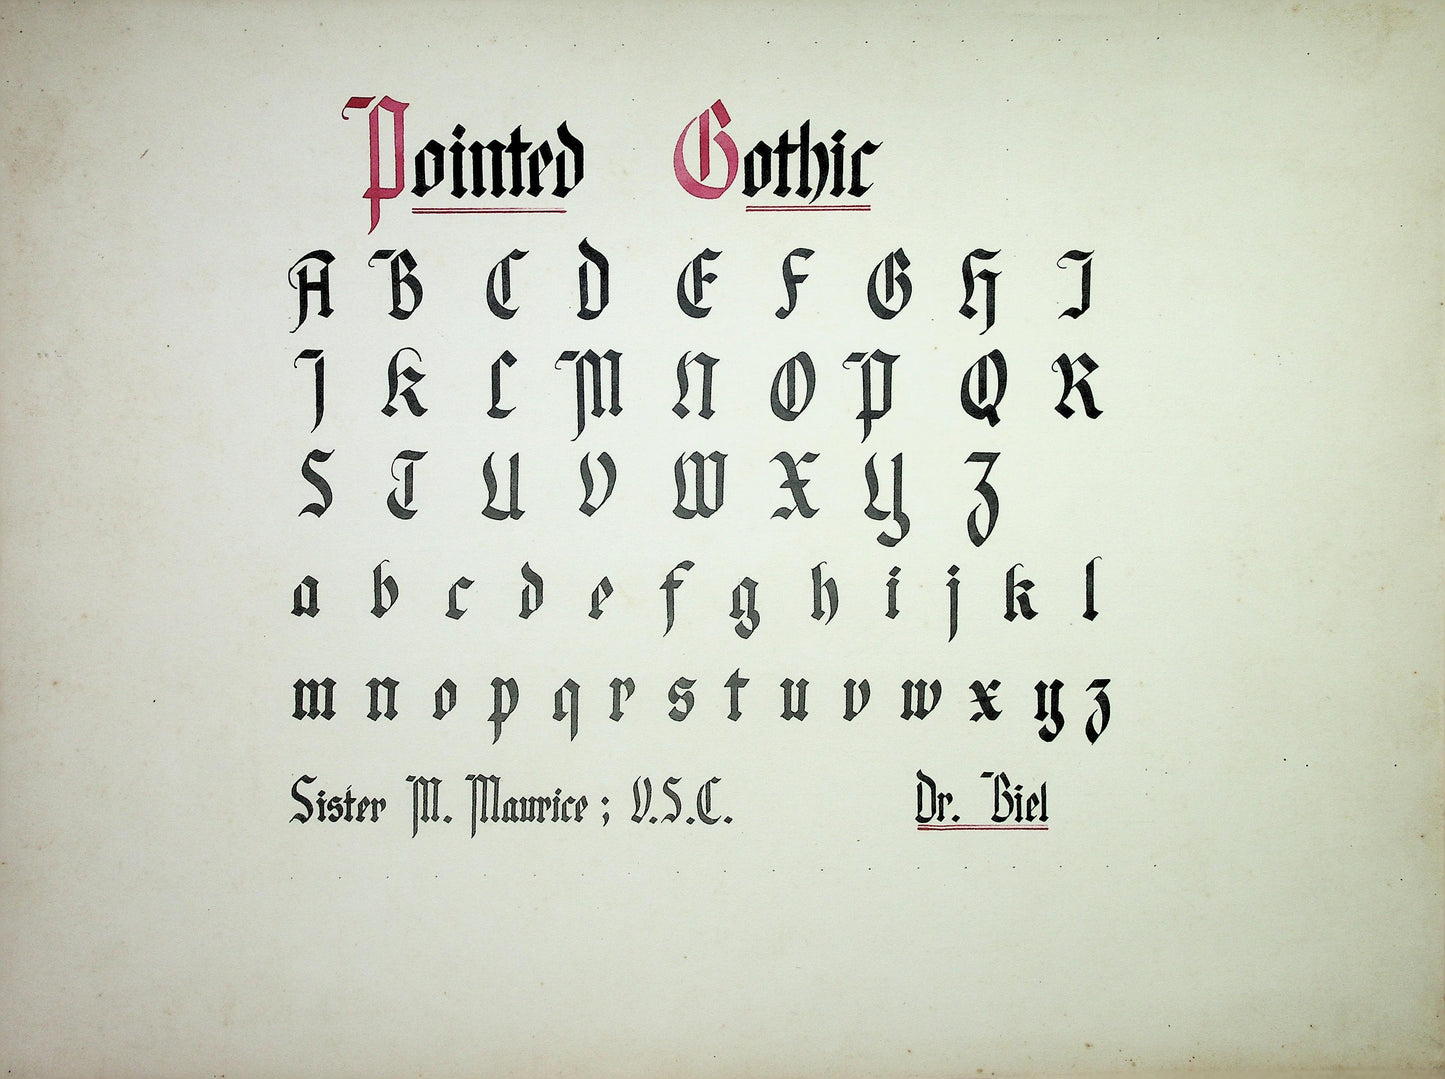 Pointed Gothic
A B C D E F G H I
J K L M N O P Q R
S T U V W X Y Z
a b c d e f g h i j k l
m n o p q r s t u v w x y z
Sister M. Maurice ; V.S.C. Dr. Biel